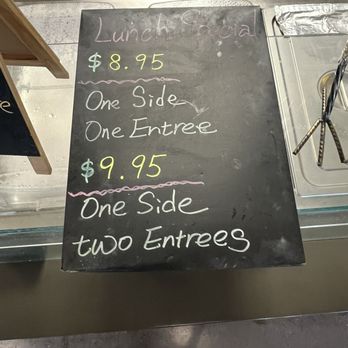 Lunch Special
$8.95
One Side
One Entree
$9.95
One Side
two Entrees